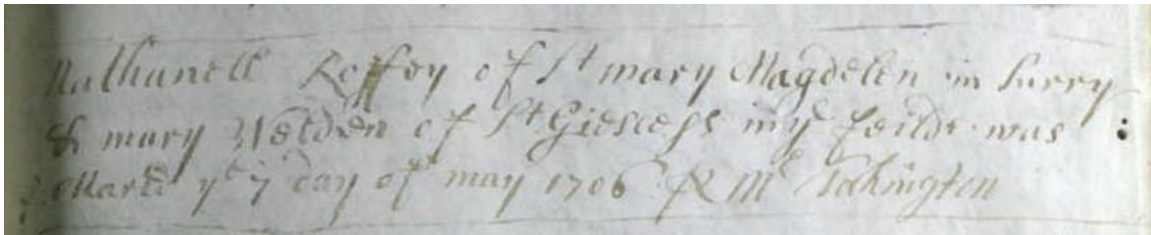 Nathanell Roffey of St mary Magdelen in Surry
& mary Welden of St Giescess in ye feilds was
Mared ye 7 day of may 1706 Mr